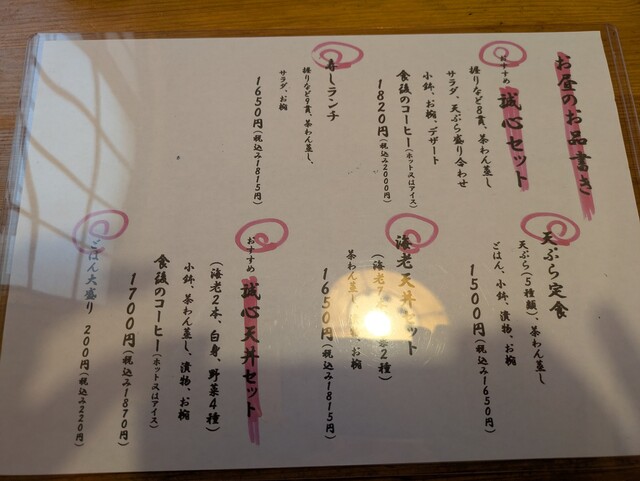 お昼のお品書き
おすすめ
誠心セット
握りなど8貫、茶わん蒸し
サラダ、天ぷら盛り合わせ
小鉢、お椀、デザート
食後のコーヒー(ホット又はアイス)
1820円(税込み2000円)
寿しランチ
握りなど9貫、茶わん蒸し、
サラダ、お椀
1650円(税込み1815円)
天ぷら定食
天ぷら(5種類)、茶わん蒸し
ごはん、小鉢、漬物、お椀
1500円(税込み1650円)
海老天丼セット
(海老 菜2種)
茶わん蒸し お椀
1650円(税込み1815円)
おすすめ
誠心天丼セット
(海老2本、白身、野菜4種)
小鉢、茶わん蒸し、漬物、お椀
食後のコーヒー(ホット又はアイス)
1700円(税込み1870円)
ごはん大盛り 200円(税込み220円)